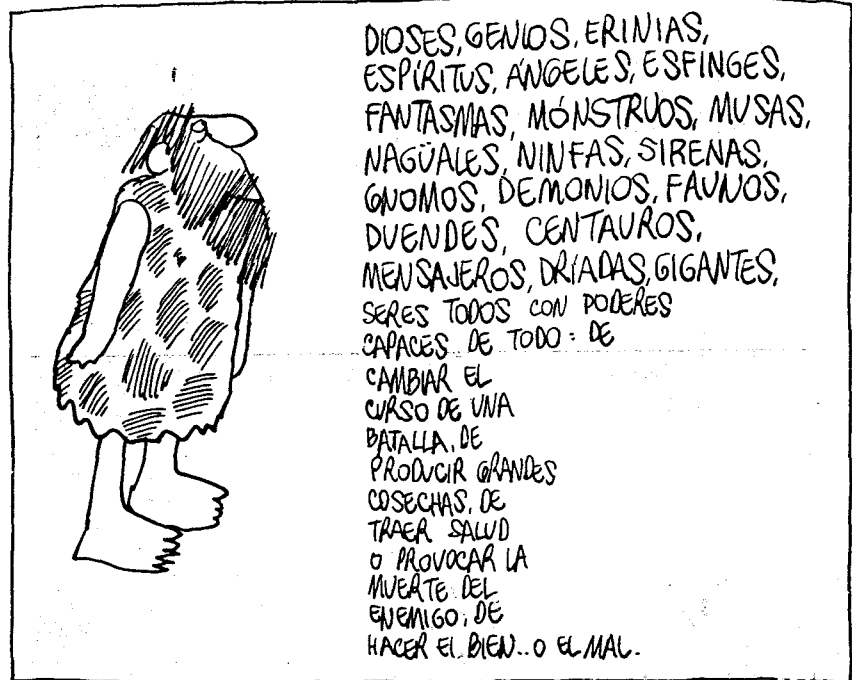 DIOSES, GENIOS, ERINIAS,
ESPÍRITUS, ÁNGELES, ESFINGES,
FANTASMAS, MÓNSTRUOS, MUSAS,
NAGÜALES, NINFAS, SIRENAS,
GNOMOS, DEMONIOS, FAUNOS,
DUENDES, CENTAUROS,
MENSAJEROS, DRÍADAS, GIGANTES,
SERES TODOS CON PODERES
CAPACES DE TODO: DE
CAMBIAR EL
CURSO DE UNA
BATALLA, DE
PRODUCIR GRANDES
COSECHAS, DE
TRAER SALUD
O PROVOCAR LA
MUERTE DEL
ENEMIGO, DE
HACER EL BIEN.. O EL MAL.